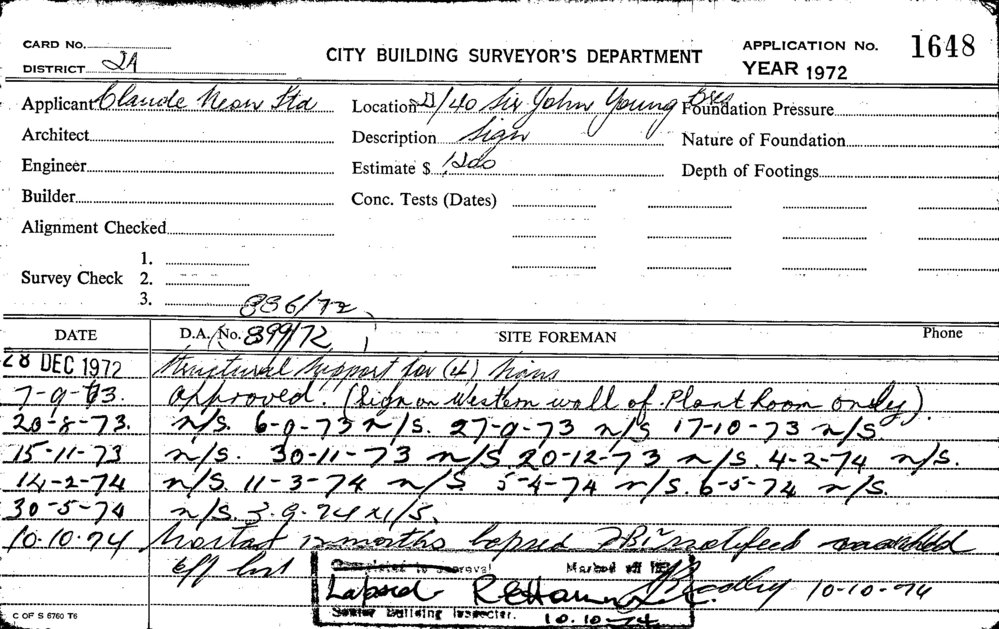 CARD No.
DISTRICT 2A
CITY BUILDING SURVEYOR'S DEPARTMENT
APPLICATION No. 1648
YEAR 1972
Applicant Claude Neon Ltd
Location 21/40 Sir John Young Cres
Foundation Pressure
Architect
Description Sign
Nature of Foundation
Engineer
Estimate $ 1200
Depth of Footings
Builder
Conc. Tests (Dates)
Alignment Checked
Survey Check 1.
2.
3.
836/72
DATE D.A. No. 899/72 SITE FOREMAN Phone
28 DEC 1972 Structural Support for (4) Signs
7-9-73. Approved. (Sign on Western wall of Plant Room only).
20-8-73. n/S. 6-9-73 n/S. 27-9-73 n/S 17-10-73 n/S.
15-11-73 n/S. 30-11-73 n/S 20-12-73 n/S. 4-2-74 n/S.
14-2-74 n/S. 11-3-74 n/S 5-4-74 n/S. 6-5-74 n/S.
30-5-74 n/S 3.9.74 n/S.
10.10.74 No start 12 months lapsed DBI notified marked
off list
Completed to approval Marked off list
Lapsed 10-10-74
Senior Building Inspector. 10.10.74
C OF S 6760 T6